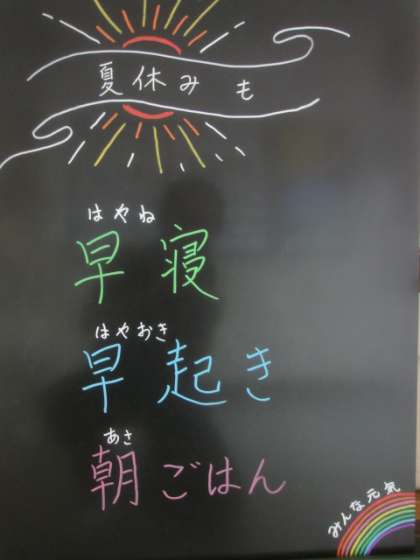 夏休みも
はやね
早寝
はやおき
早起き
あさ
朝ごはん
みんな元気